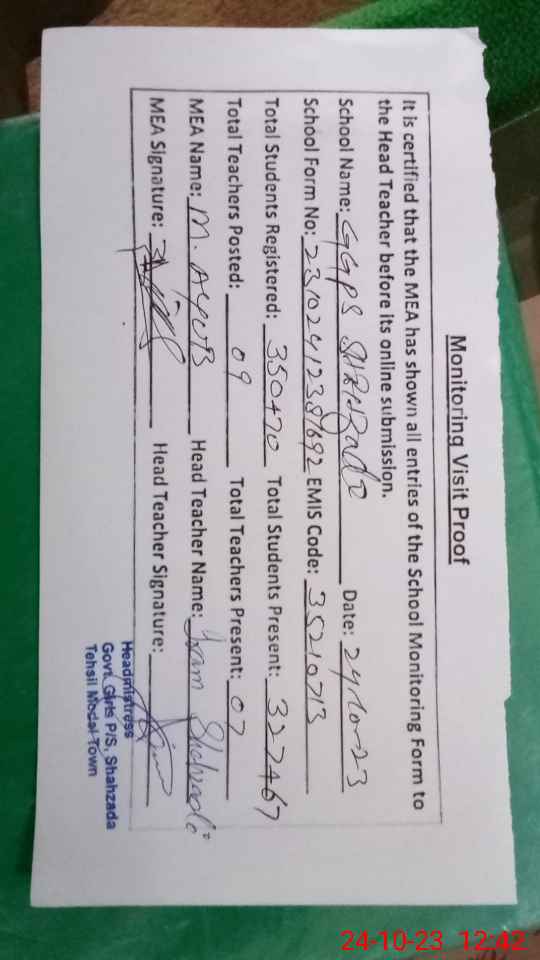 Monitoring Visit Proof
It is certified that the MEA has shown all entries of the School Monitoring Form to
the Head Teacher before its online submission.
School Name: GGPS Date: 24-10-23
School Form No: EMIS Code: 35210713
Total Students Registered: 350+70 Total Students Present: 327+67
Total Teachers Posted: 09 Total Teachers Present: 07
MEA Name: M. AYUB Head Teacher Name:
MEA Signature: Head Teacher Signature:
Headmistress
Govt. Girls P/S, Shahzada
Tehsil Model Town
24-10-23 12:42